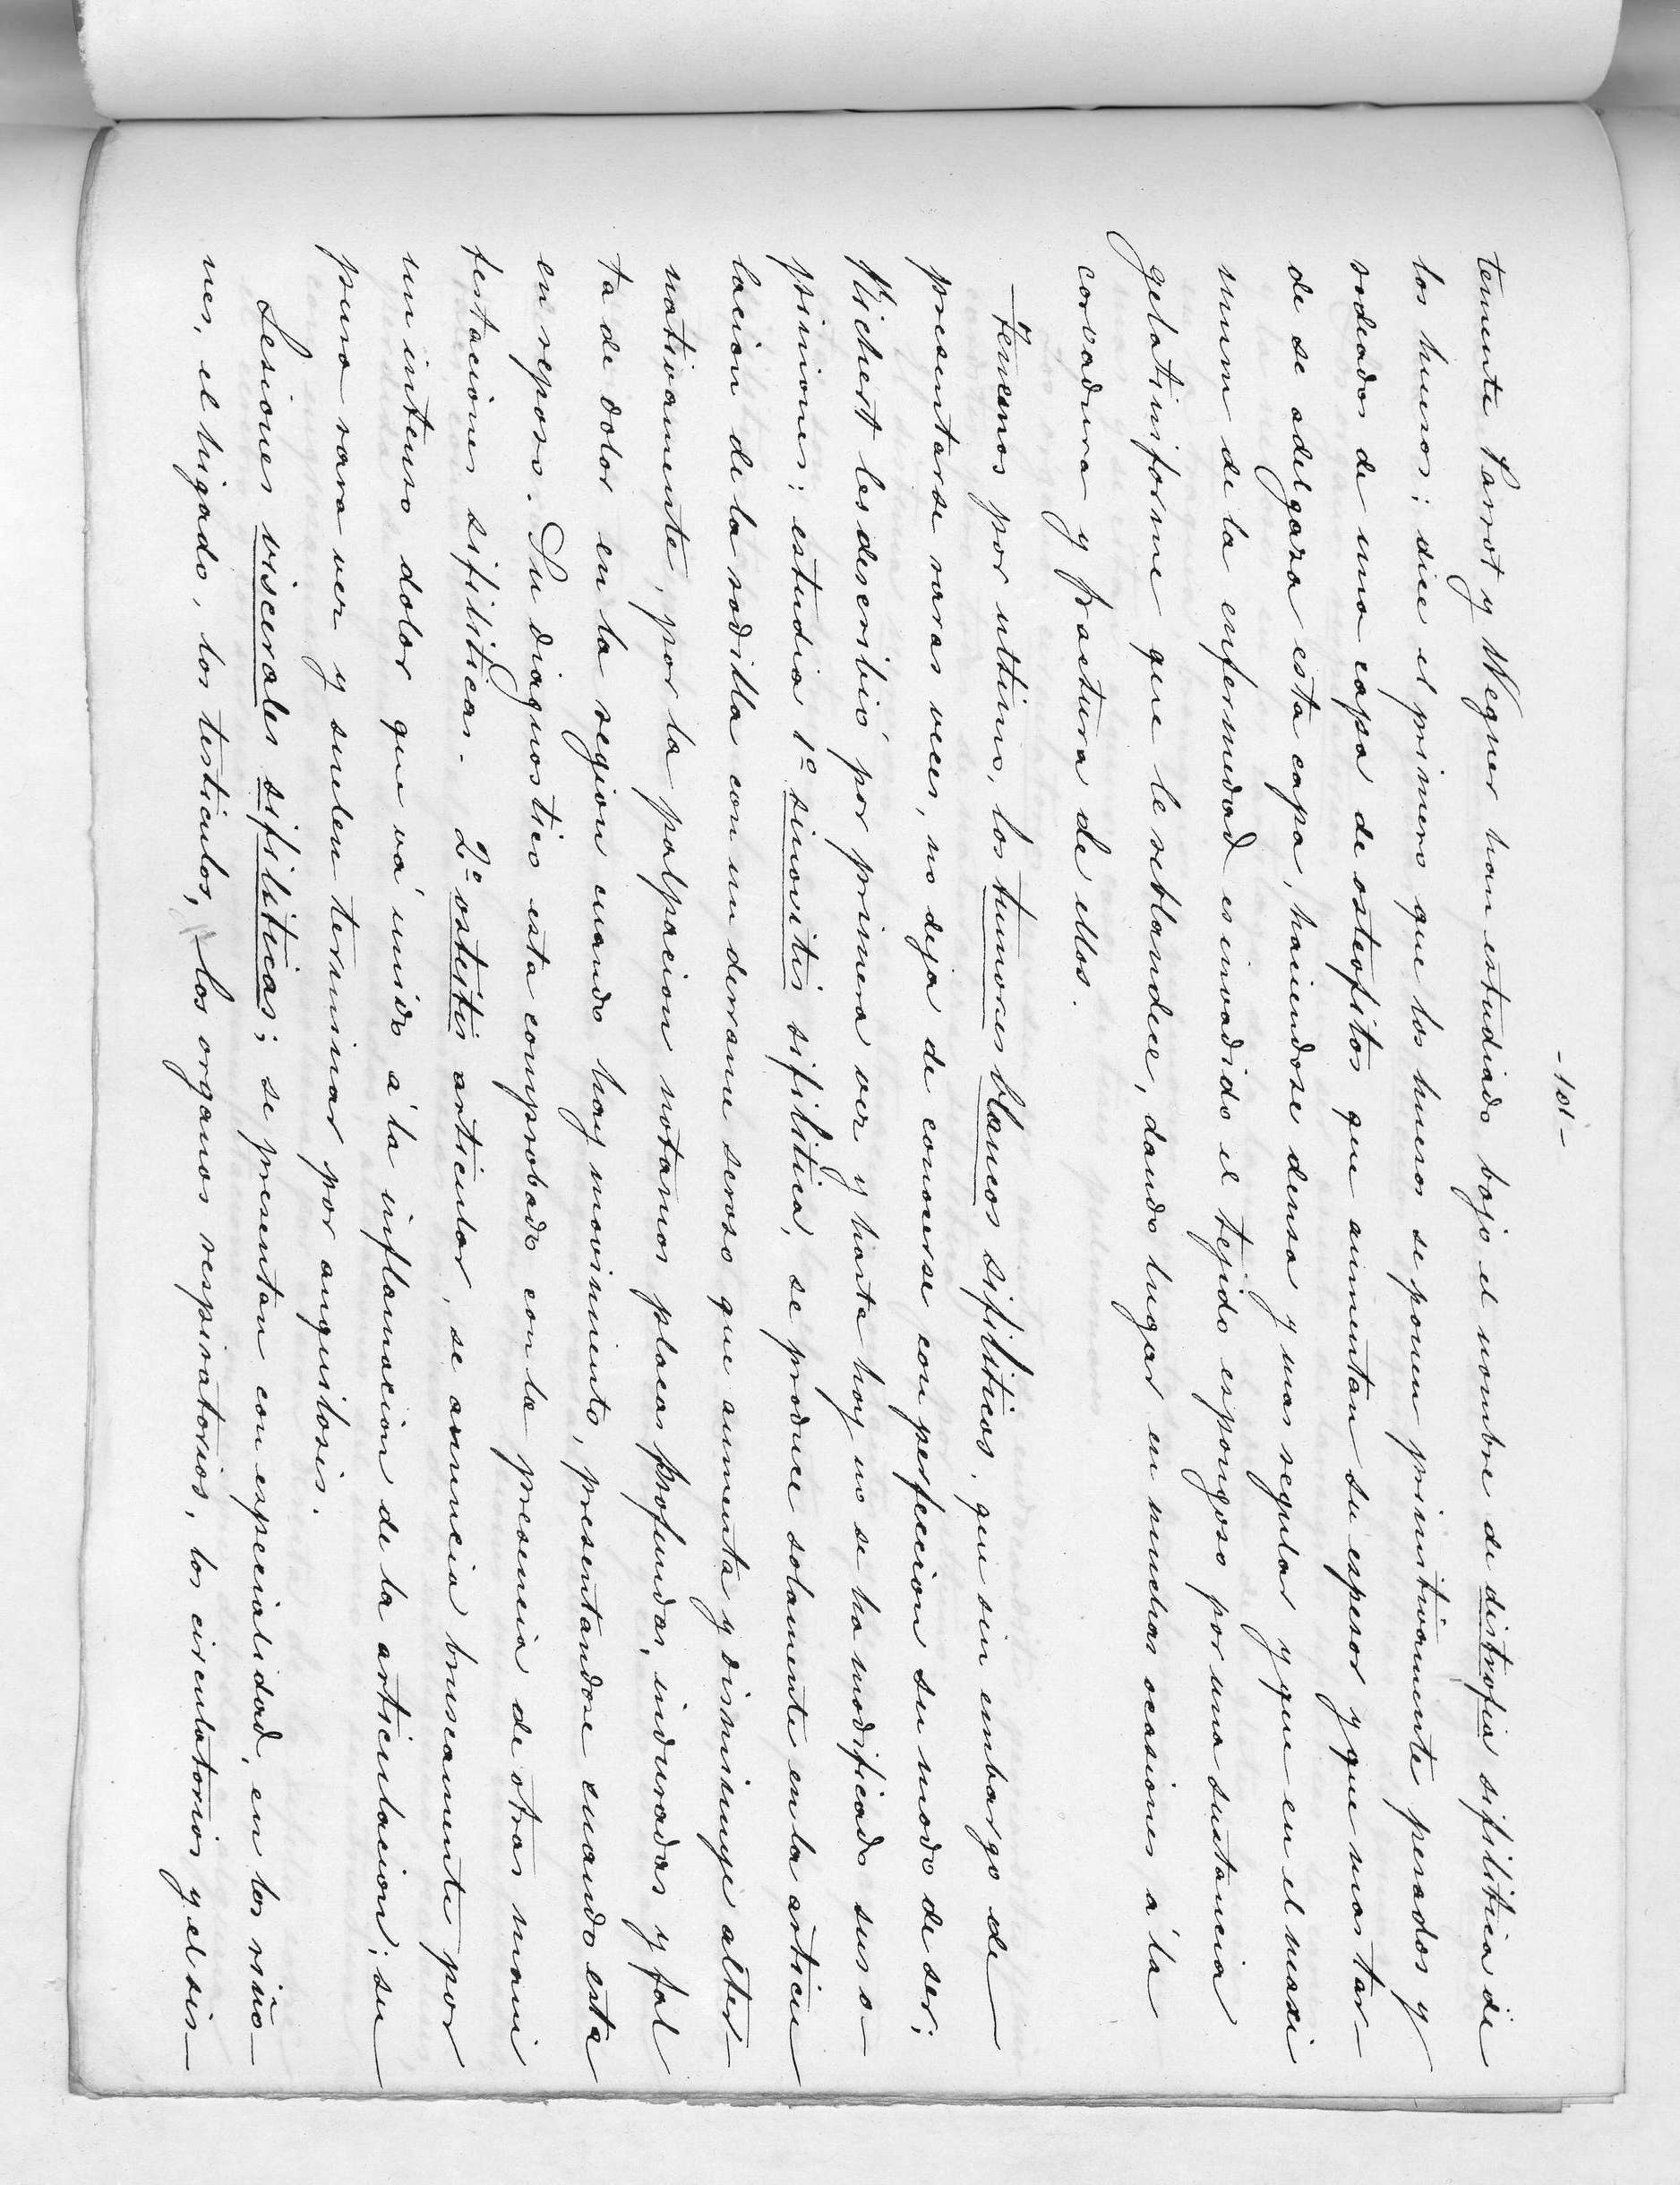 -101-
temente Parrot y Wegner han estudiado bajo el nombre de distrofia sifilitica de
los huesos; dice el primero que los huesos se ponen primitivamente pesados y
rodeados de una capa de osteofitos que aumentan su espesor y que mas tar-
de se adelgaza esta capa, haciendose densa y mas regular y que en el maxi
mum de la enfermedad es invadido el tejido esponjoso por una sustancia
gelatiniforme que le reblandece, dando lugar en muchas ocasiones á la
corvadura y fractura de ellos.
Tenemos por ultimo, los tumores blancos sifiliticos, que sin embargo de
presentarse raras veces, no deja de conocerse con perfeccion su modo de ser;
Richert les describió por primera vez y hasta hoy no se ha modificado sus o-
piniones; estudia 1º sinovitis sifilitica, se produce solamente en la articu
lacion de la rodilla con un derrame seroso que aumenta y disminuye alter-
nativamente, por la palpacion notamos placas profundas, induradas y fal
ta de dolor en la region cuando hay movimiento, presentandose cuando esta
en reposo. Su diagnostico esta comprobado con la presencia de otras mani
festaciones sifiliticas. 2º osteitis articular, se anuncia bruscamente por
un intenso dolor que vá unido á la inflamacion de la articulacion; su
puro rara vez y suelen terminar por anquilosis.
Lesiones viscerales sifiliticas; se presentan con especialidad, en los riño-
nes, el higado, los testiculos, los organos respiratorios, los circulatorios y el sis-